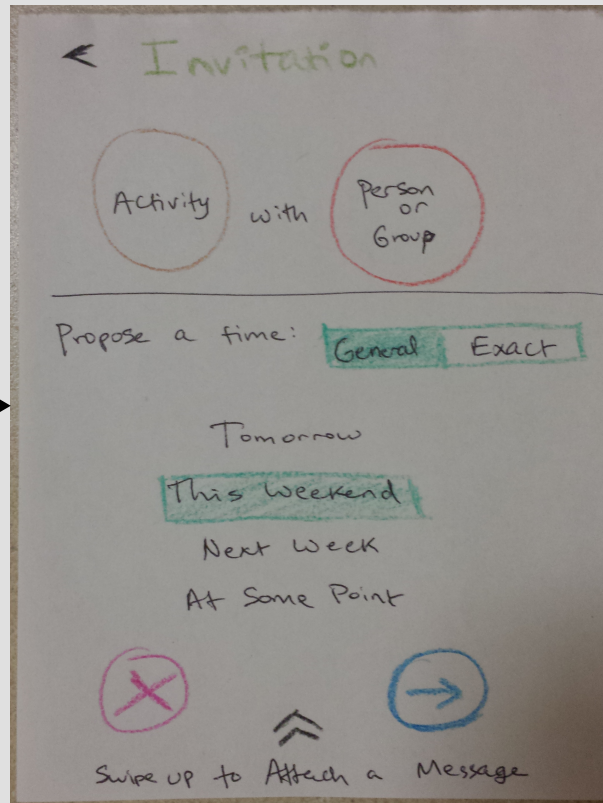 Invitation
Activity with Person or Group
Propose a time: General Exact
Tomorrow
This Weekend
Next Week
At Some Point
Swipe up to Attach a Message